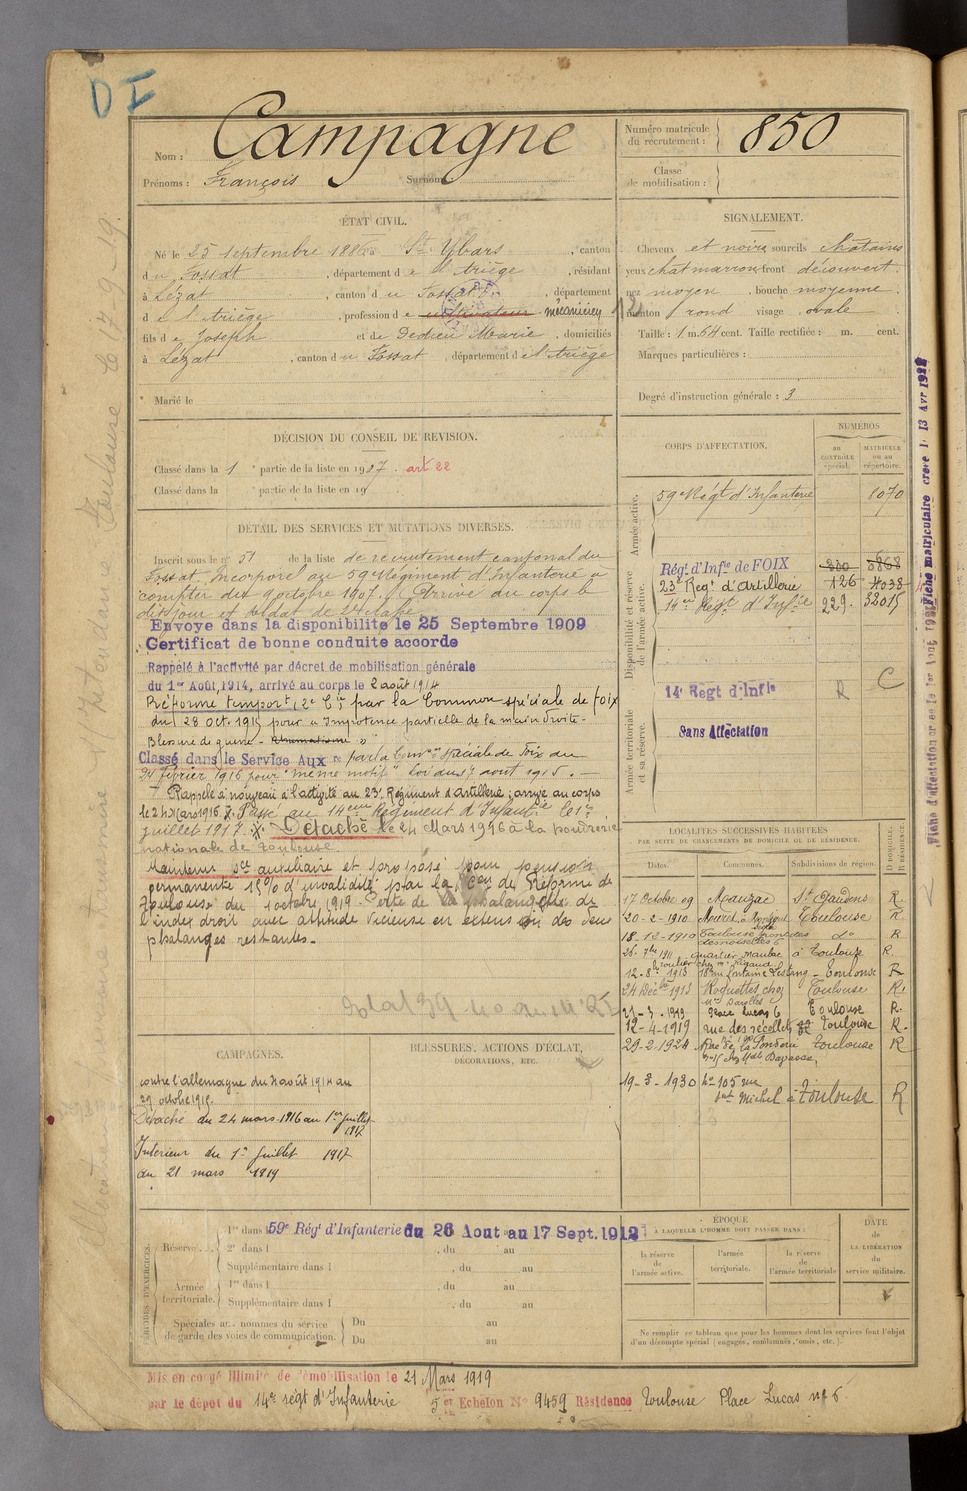 D I
Nom : Campagne
Prénoms : François Surnoms :
Numéro matricule du recrutement : 850
Classe de mobilisation :
ÉTAT CIVIL.
Né le 25 septembre 1886 à St Ybars, canton
du Fossat, département de l'Ariège, résidant
à Lézat, canton du Fossat, département
de l'Ariège, profession de cultivateur mécanicien
fils de Joseph et de Dedieu Marie, domiciliés
à Lézat, canton du Fossat, département de l'Ariège
Marié le
SIGNALEMENT.
Cheveux et noirs sourcils chatains
yeux chat marrons, front découvert
nez moyen, bouche moyenne
menton rond visage ovale
Taille : 1 m. 64 cent. Taille rectifiée : m. cent.
Marques particulières :
Degré d'instruction générale : 3
DÉCISION DU CONSEIL DE REVISION.
Classé dans la 1 partie de la liste en 1907. art 22
Classé dans la partie de la liste en 19
DÉTAIL DES SERVICES ET MUTATIONS DIVERSES.
Inscrit sous le n° 51 de la liste de recrutement cantonal du
Fossat. Incorporé au 59e Régiment d'Infanterie à
compter du 9 octobre 1907. Arrivé au corps le
dit jour et soldat de 2e classe
Envoyé dans la disponibilité le 25 Septembre 1909
Certificat de bonne conduite accordé
Rappelé à l'activité par décret de mobilisation générale
du 1er Août 1914, arrivé au corps le 2 août 1914
Réformé tempor t 2e Cie par la Common spéciale de foix
du 28 oct. 1915 pour " Impotence partielle de la main droite -
Blessure de guerre - Rhumatisme "
Classé dans le Service Auxre par la Comon spéciale de Foix du
24 février 1916 pour "même motif" loi du 17 aout 1915. -
Rappelé à nouveau à l'activité au 23e Régiment d'artillerie ; arrivé au corps
le 24 Mars 1916. Passé au 14eme Régiment d'Infantie le 1er
juillet 1917. Détaché le 24 Mars 1916 à la poudrerie
nationale de Toulouse
Maintenu sce auxiliaire et proposé pour pension
permanente 15% d'invalidité par la Con de Réforme de
Toulouse du 1 octobre 1919. Perte de la phalange de
l'index droit avec attitude vicieuse en extension des deux
phalanges restantes.
CORPS D'AFFECTATION.
NUMÉROS
au CONTRÔLE spécial.
MATRICULE ou au répertoire.
Armée active.
59e Régt d'Infanterie 1070
Disponibilité et réserve de l'armée active.
Régt d'Infie de FOIX
23e Regt d'artillerie 126 4038
14eme Régt d'Infie 229. 32015
Armée territoriale et sa réserve.
14e Regt d'Infie R C
Sans Affectation
LOCALITÉS SUCCESSIVES HABITÉES
PAR SUITE DE CHANGEMENTS DE DOMICILE OU DE RÉSIDENCE.
Dates. Communes. Subdivisions de région. D DOMICILE. R RÉSIDENCE
17 Octobre 09 Mauzac St Gaudens R.
20-2-1910 Muret Toulouse R
18-12-1910 Toulouse do R
à Toulouse R.
12-8-1913 Toulouse R
24 Déc bre 1913 Roquettes chez Toulouse R.
21-3-1919 Place Lucas 6 Toulouse R.
12-4-1919 rue des récollets Toulouse R.
29-2-1924 Toulouse R
19-3-1930 No 105 rue
St Michel à Toulouse R
CAMPAGNES.
contre l'allemagne du 2 août 1914 au
29 octobre 1915.
Détaché du 24 mars 1916 au 1er juillet
1917
Intérieur du 1er Juillet 1917
au 21 mars 1919
BLESSURES, ACTIONS D'ÉCLAT,
DÉCORATIONS, ETC.
PÉRIODES D'EXERCICES.
Réserve. 1re dans l 59e Régt d'Infanterie du 26 Aout au 17 Sept. 1912
2e dans l , du au
Supplémentaire dans l , du au
Armée territoriale. 1re dans l , du au
Supplémentaire dans l , du au
Spéciales aux hommes du service de garde des voies de communication. Du au
Du au
ÉPOQUE
À LAQUELLE L'HOMME DOIT PASSER DANS :
la réserve de l'armée active.
l'armée territoriale.
la réserve de l'armée territoriale
DATE de LA LIBÉRATION du service militaire.
Ne remplir ce tableau que pour les hommes dont les services font l'objet
d'un décompte spécial (engagés, condamnés, omis, etc.).
Mis en congé illimité de démobilisation le 21 Mars 1919
par le dépôt du 14e régt d'Infanterie 5e Echelon N° 9459 Résidence Toulouse Place Lucas no 6
Fiche matriculaire créée le 13 Avr 1922